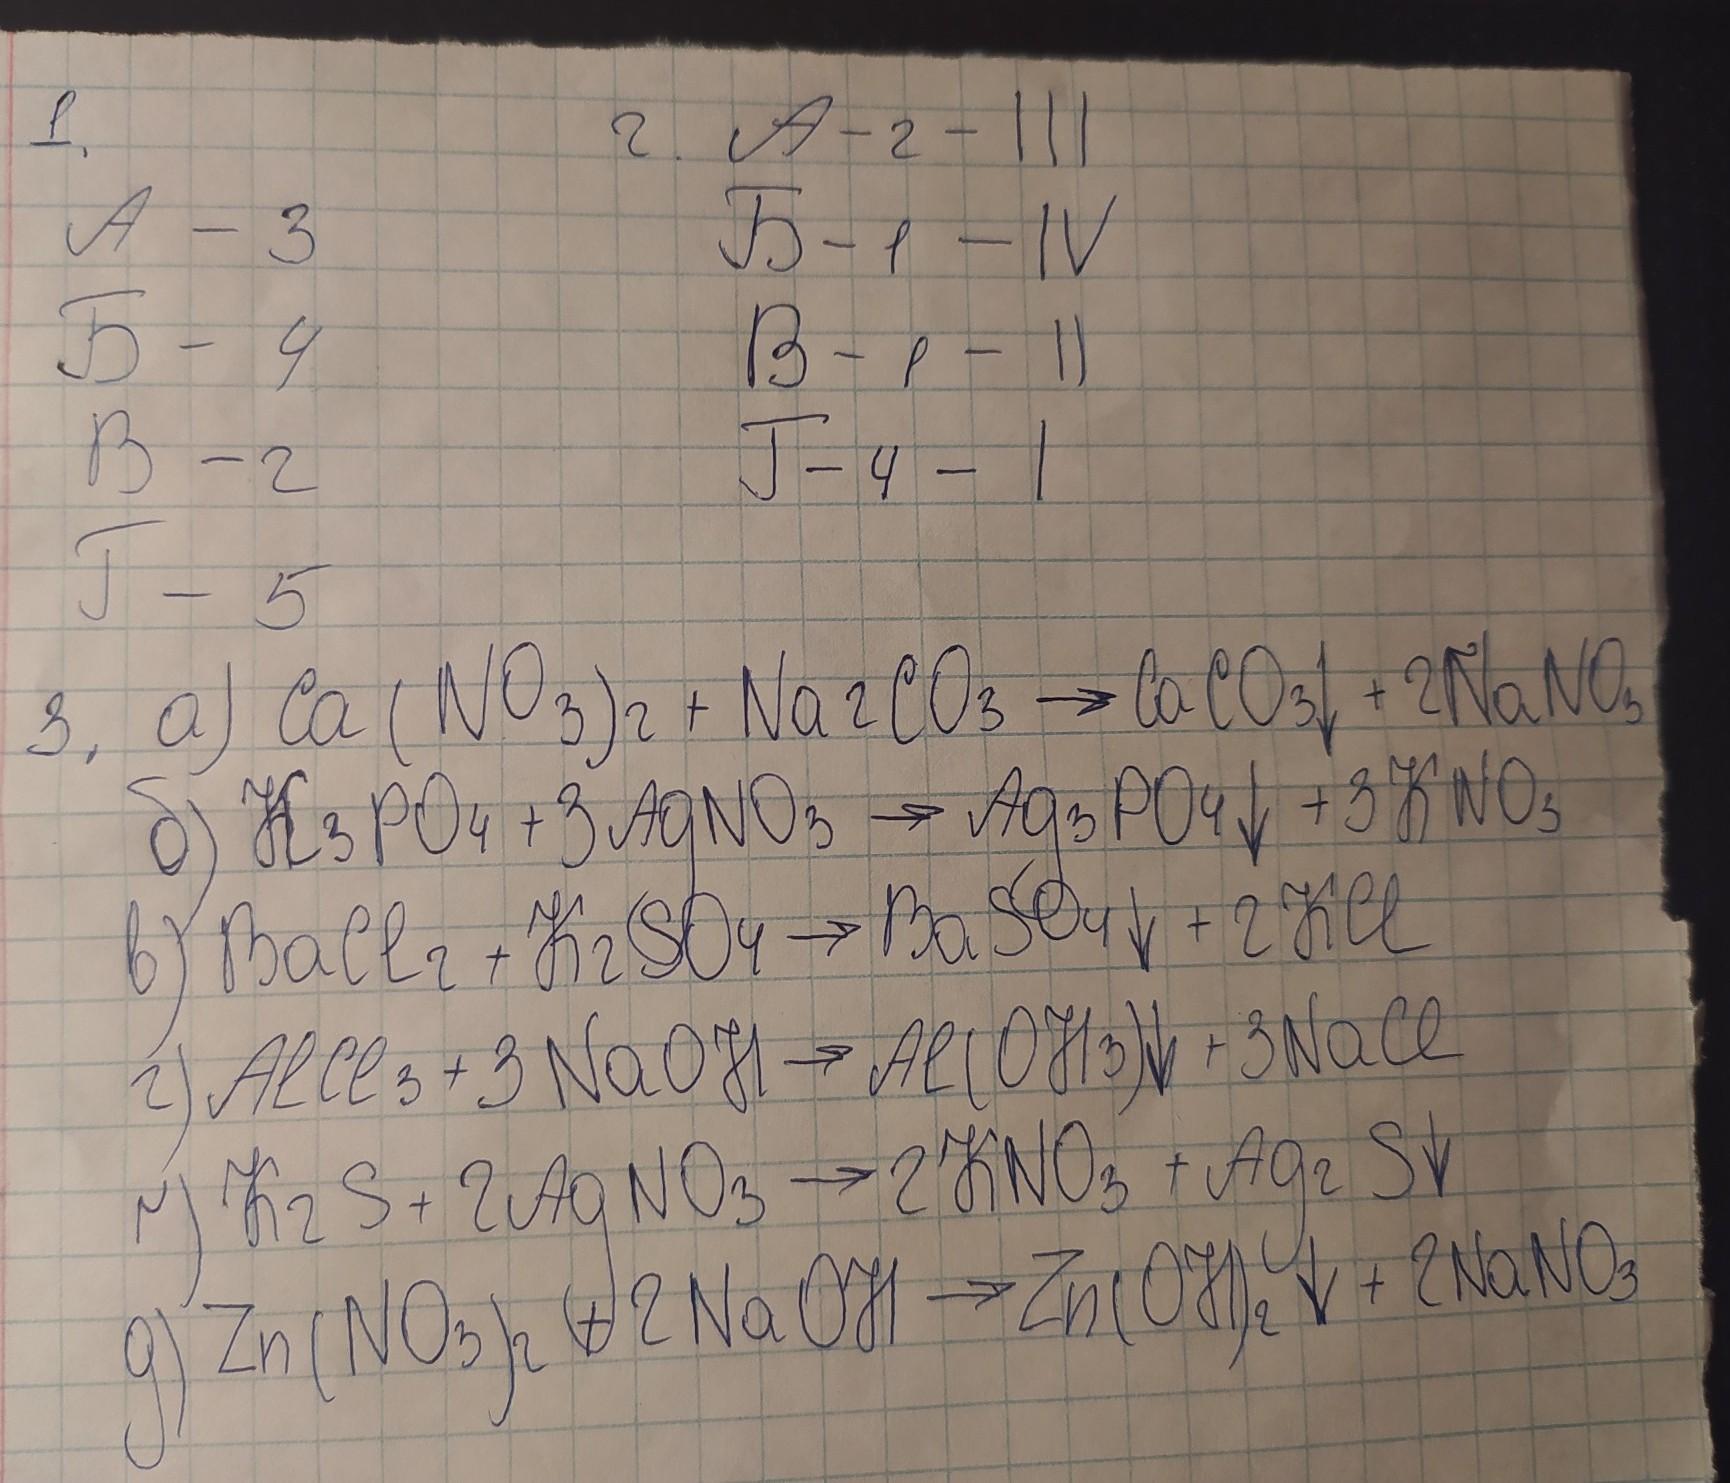 1.
А – 3
Б – 4
В – 2
Г – 5
2. А – 2 – III
Б – 1 – IV
В – 1 – II
Г – 4 – I
3. а) Ca(NO3)2 + Na2CO3 → CaCO3↓ + 2NaNO3
б) K3PO4 + 3AgNO3 → Ag3PO4↓ + 3KNO3
в) BaCl2 + K2SO4 → BaSO4↓ + 2KCl
г) AlCl3 + 3NaOH → Al(OH3)↓ + 3NaCl
г) K2S + 2AgNO3 → 2KNO3 + Ag2S↓
д) Zn(NO3)2 + 2NaOH → Zn(OH)2↓ + 2NaNO3